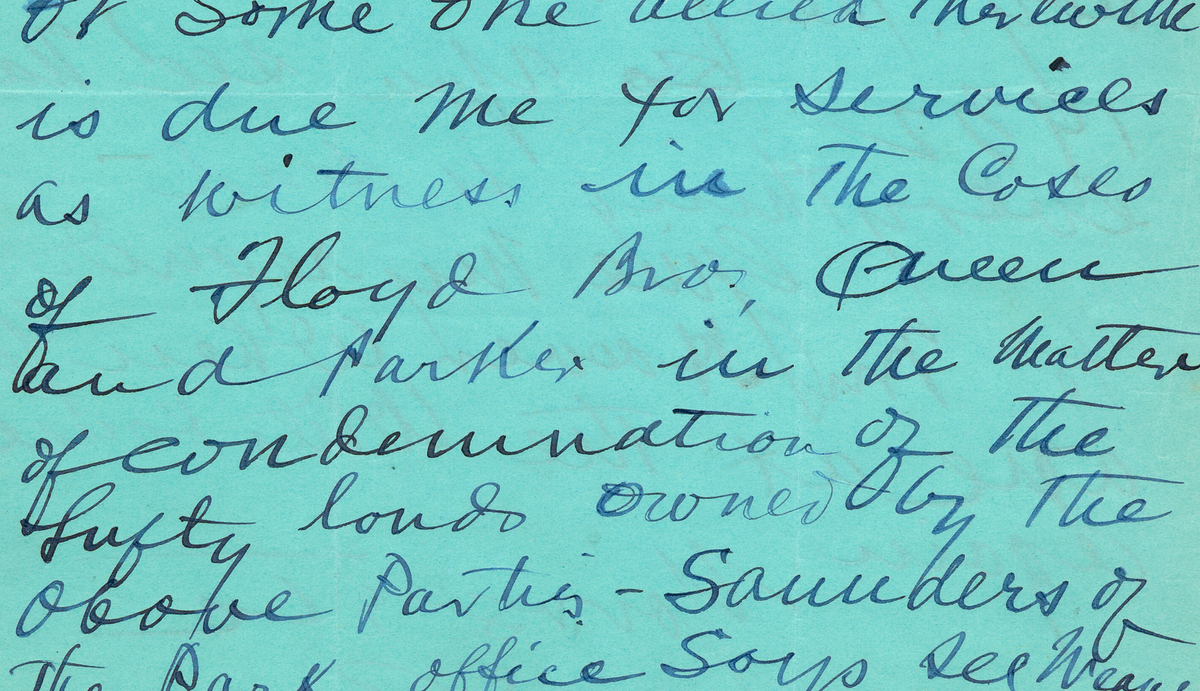 or Some One allied therewith
is due me for services
as witness in The Cases
of Floyd Bros, Queen
and Parker in the Matter
of condemnation of the
lands owned by the
above Parties - Saunders of
The Park office Says see